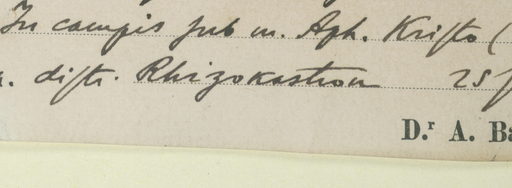 In campis sub m. Aph. Kristo (
. distr. Rhizokastron 25
D.r A. Ba